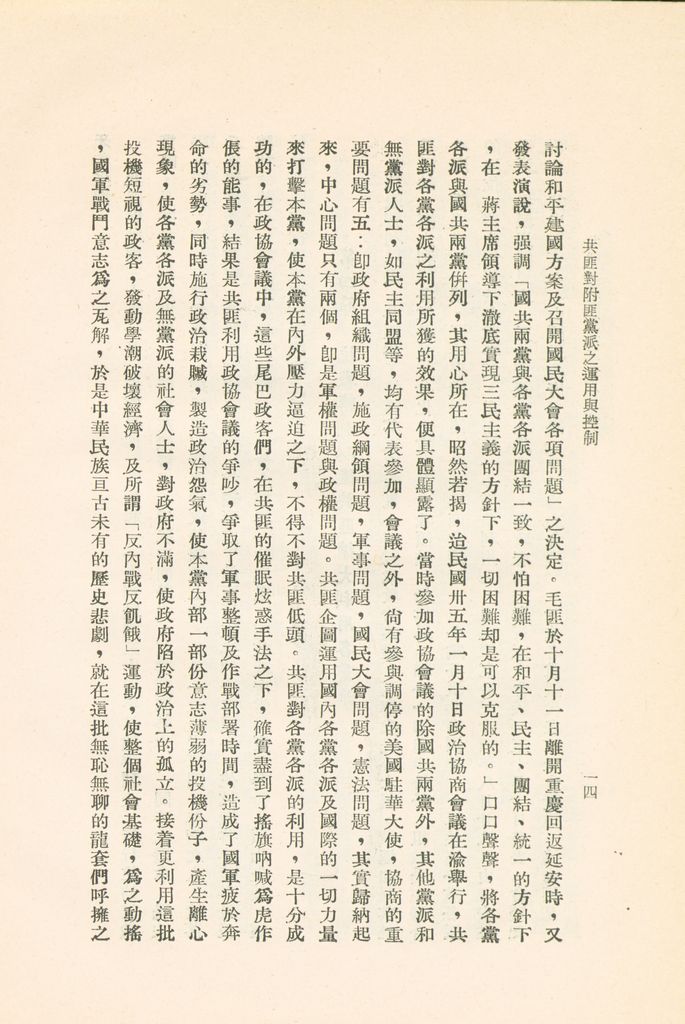 共匪對附匪黨派之運用與控制
一四
討論和平建國方案及召開國民大會各項問題」之決定。毛匪於十月十一日離開重慶回返延安時，又
發表演說，强調「國共兩黨與各黨各派團結一致，不怕困難，在和平、民主、團結、統一的方針下
，在　蔣主席領導下澈底實現三民主義的方針下，一切困難却是可以克服的。」口口聲聲，將各黨
各派與國共兩黨倂列，其用心所在，昭然若揭，迨民國卅五年一月十日政治協商會議在渝舉行，共
匪對各黨各派之利用所獲的效果，便具體顯露了。當時參加政協會議的除國共兩黨外，其他黨派和
無黨派人士，如民主同盟等，均有代表參加，會議之外，尙有參與調停的美國駐華大使，協商的重
要問題有五：卽政府組織問題，施政綱領問題，軍事問題，國民大會問題，憲法問題，其實歸納起
來，中心問題只有兩個，卽是軍權問題與政權問題。共匪企圖運用國內各黨各派及國際的一切力量
來打擊本黨，使本黨在內外壓力逼迫之下，不得不對共匪低頭。共匪對各黨各派的利用，是十分成
功的，在政協會議中，這些尾巴政客們，在共匪的催眠炫惑手法之下，確實盡到了搖旗吶喊爲虎作
倀的能事，結果是共匪利用政協會議的爭吵，爭取了軍事整頓及作戰部署時間，造成了國軍疲於奔
命的劣勢，同時施行政治栽贓，製造政治怨氣，使本黨內部一部份意志薄弱的投機份子，產生離心
現象，使各黨各派及無黨派的社會人士，對政府不滿，使政府陷於政治上的孤立。接着更利用這批
投機短視的政客，發動學潮破壞經濟，及所謂「反內戰反飢餓」運動，使整個社會基礎，爲之動搖
，國軍戰鬥意志爲之瓦解，於是中華民族亘古未有的歷史悲劇，就在這批無恥無聊的龍套們呼擁之